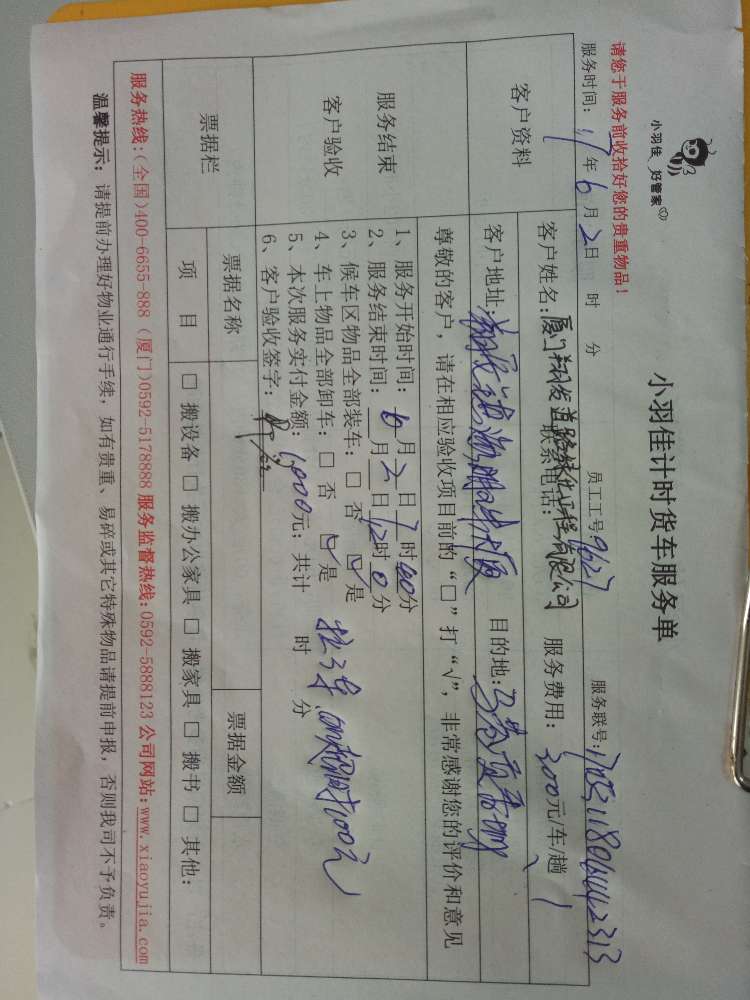 小羽佳 好管家
小羽佳计时货车服务单
请您于服务前收拾好您的贵重物品!
服务时间: 17年6月2日 时 分 员工工号9627 服务联号:
客户资料
客户姓名: 厦门翔 道路 工程有限公司 联系电话: 服务费用: 300元/车/趟
客户地址: 目的地:
服务结束
客户验收
尊敬的客户,请在相应验收项目前的“□”打“√”,非常感谢您的评价和意见
1、服务开始时间: 6月2日7时00分
2、服务结束时间: 6月2日12时0分
3、候车区物品全部装车: □ 否 ☑ 是
4、车上物品全部卸车: □ 否 ☑ 是
5、本次服务实付金额: 元; 共计 时 分
6、客户验收签字:
票据栏
票据名称 票据金额
项 目 □ 搬设备 □ 搬办公家具 □ 搬家具 □ 搬书 □ 其他:
服务热线:(全国)400-6655-888 (厦门)0592-5178888 服务监督热线:0592-5888123 公司网站:www.xiaoyujia.com
温馨提示: 请提前办理好物业通行手续,如有贵重、易碎或其它特殊物品请提前申报,否则我司不予负责。